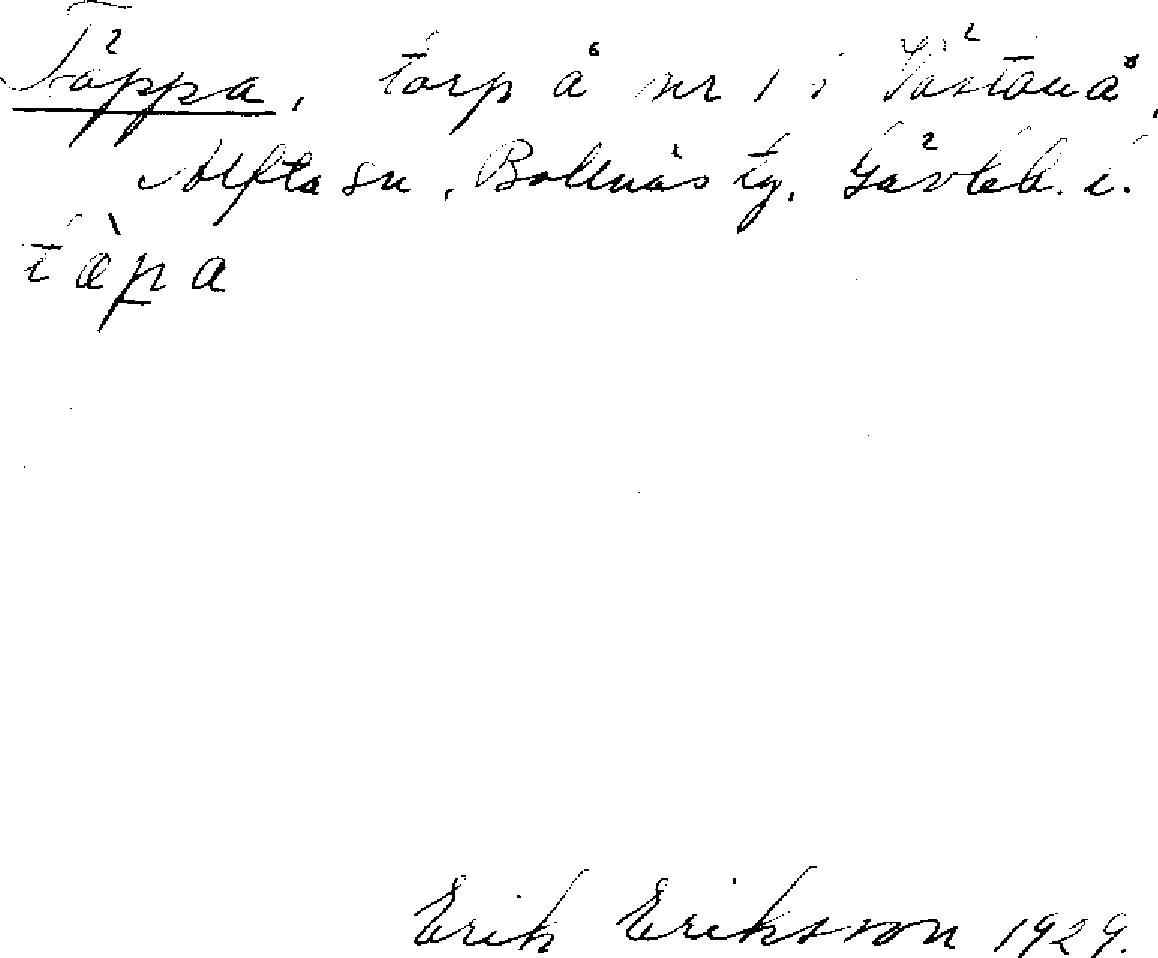 Täppa, torp å nr 1 i Västanå,
Alfta sn, Bollnäs tg, Gävleb. l.
tæ̀pa
Erik Eriksson 1929.